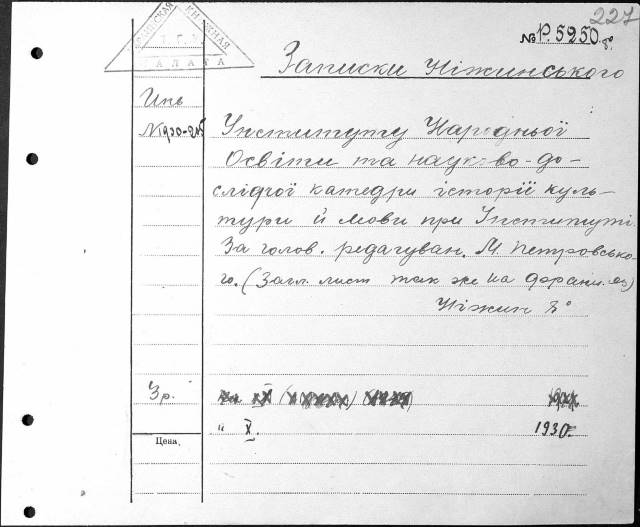 227
№ Р. 5250 8°
КНИЖНАЯ
ПАЛАТА
Записки Ніжинського
Инв
N 1930-215
Інституту Народньої
Освіти та науково-до-
слідчої катедри історії куль-
тури й мови при Інституті.
За голов. редагуван. М. Петровсько-
го. (Загл. лист так же на франц. яз)
Ніжин 8°
3р.
" X. 1930.
Цена